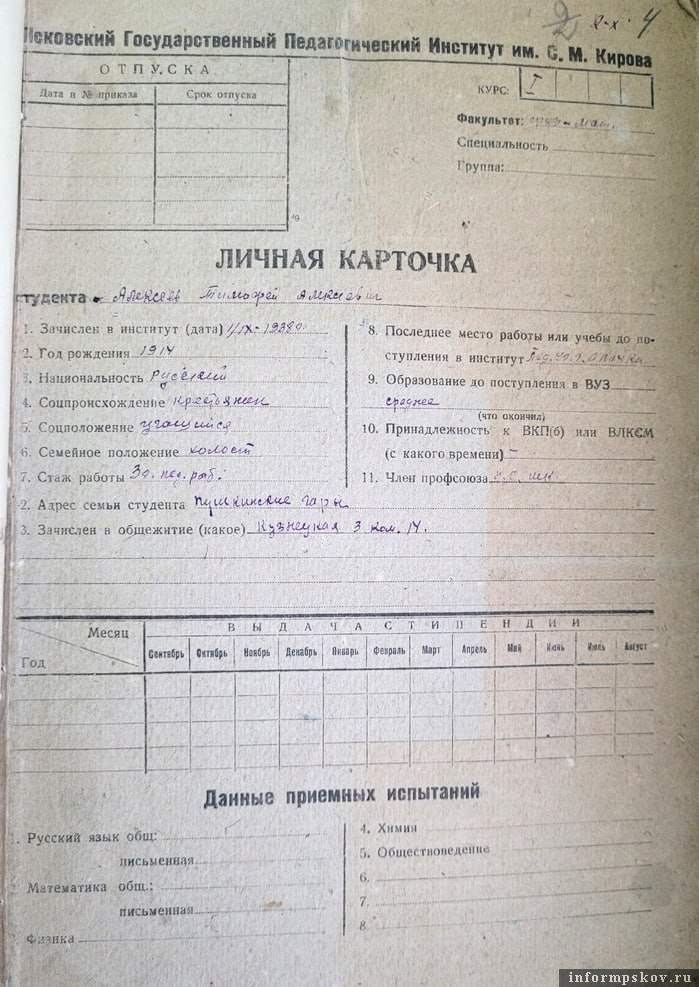 2
2-X. 4
Псковский Государственный Педагогический Институт им. С. М. Кирова
ОТПУСКА
Дата и № приказа Срок отпуска
КУРС: I
Факультет: физ-мат.
Специальность
Группа:
ЛИЧНАЯ КАРТОЧКА
студента Алексеев Тимофей Алексеевич
1. Зачислен в институт (дата) 1/IX-1938г.
2. Год рождения 1914
3. Национальность Русский
4. Соцпроисхождение крестьянин
5. Соцположение учащийся
6. Семейное положение холост
7. Стаж работы 3г. пед. раб.
8. Последнее место работы или учебы до по-
ступления в институт Пед. уч. г. Опочка
9. Образование до поступления в ВУЗ
среднее
(что окончил)
10. Принадлежность к ВКП(б) или ВЛКСМ
(с какого времени) –
11. Член профсоюза
2. Адрес семьи студента Пушкинские горы
3. Зачислен в общежитие (какое) Кузнецкая 3 ком. 14.
Месяц
Год
ВЫДАЧА СТИПЕНДИИ
Сентябрь Октябрь Ноябрь Декабрь Январь Февраль Март Апрель Май Июнь Июль Август
Данные приемных испытаний
1. Русский язык общ:
письменная
2. Математика общ.:
письменная
Физика
4. Химия
5. Обществоведение
6.
7.
8.
informpskov.ru